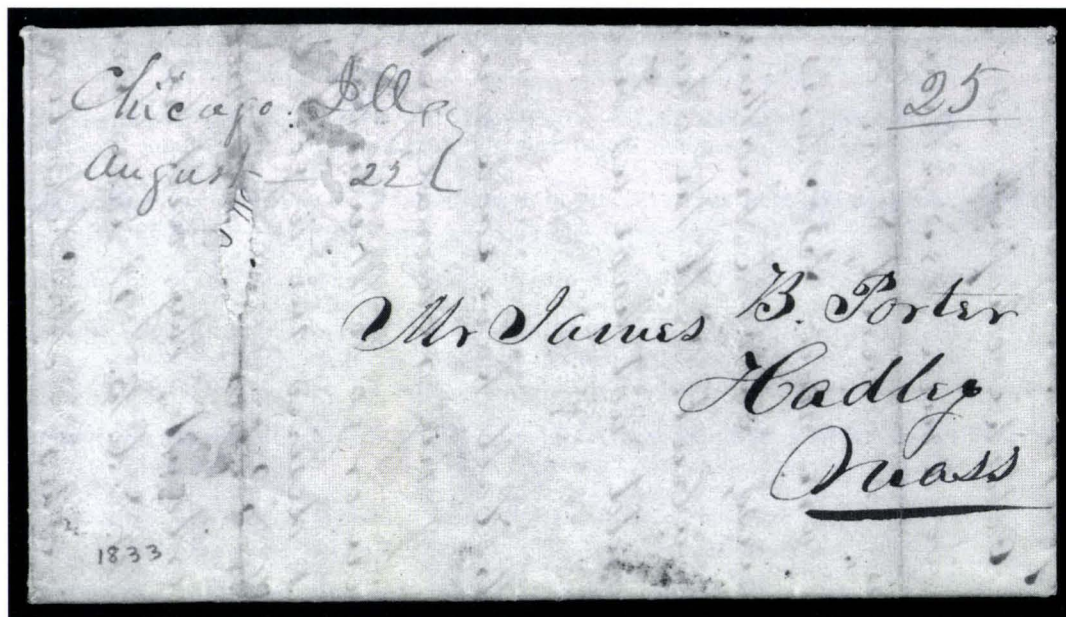 Chicago. Ills
August — 22
25
Mr James B. Porter
Hadley
Mass
1833